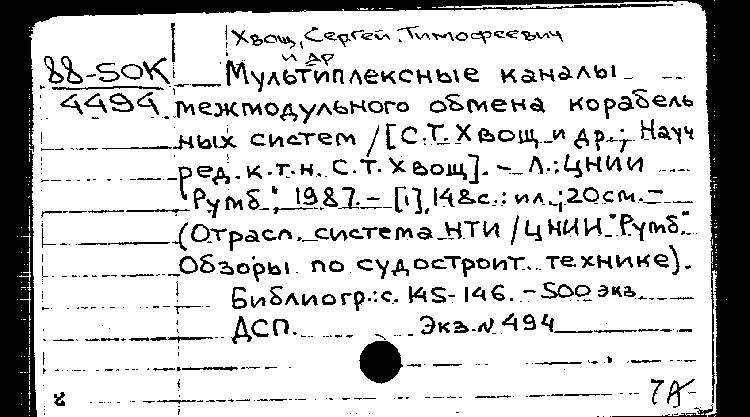 Хвощ, Сергей Тимофеевич
и др
88-50К
4494
Мультиплексные каналы
межмодульного обмена корабель
ных систем / [С.Т. Хвощ и др.; Науч
ред. к.т.н. С.Т. Хвощ]. – Л.: ЦНИИ
"Румб", 1987. – [1], 148с.: ил.; 20см. –
(Отрасл. система НТИ / ЦНИИ "Румб".
Обзоры по судостроит. технике).
Библиогр.: с. 145-146. – 500 экз
ДСП. Экз. № 494